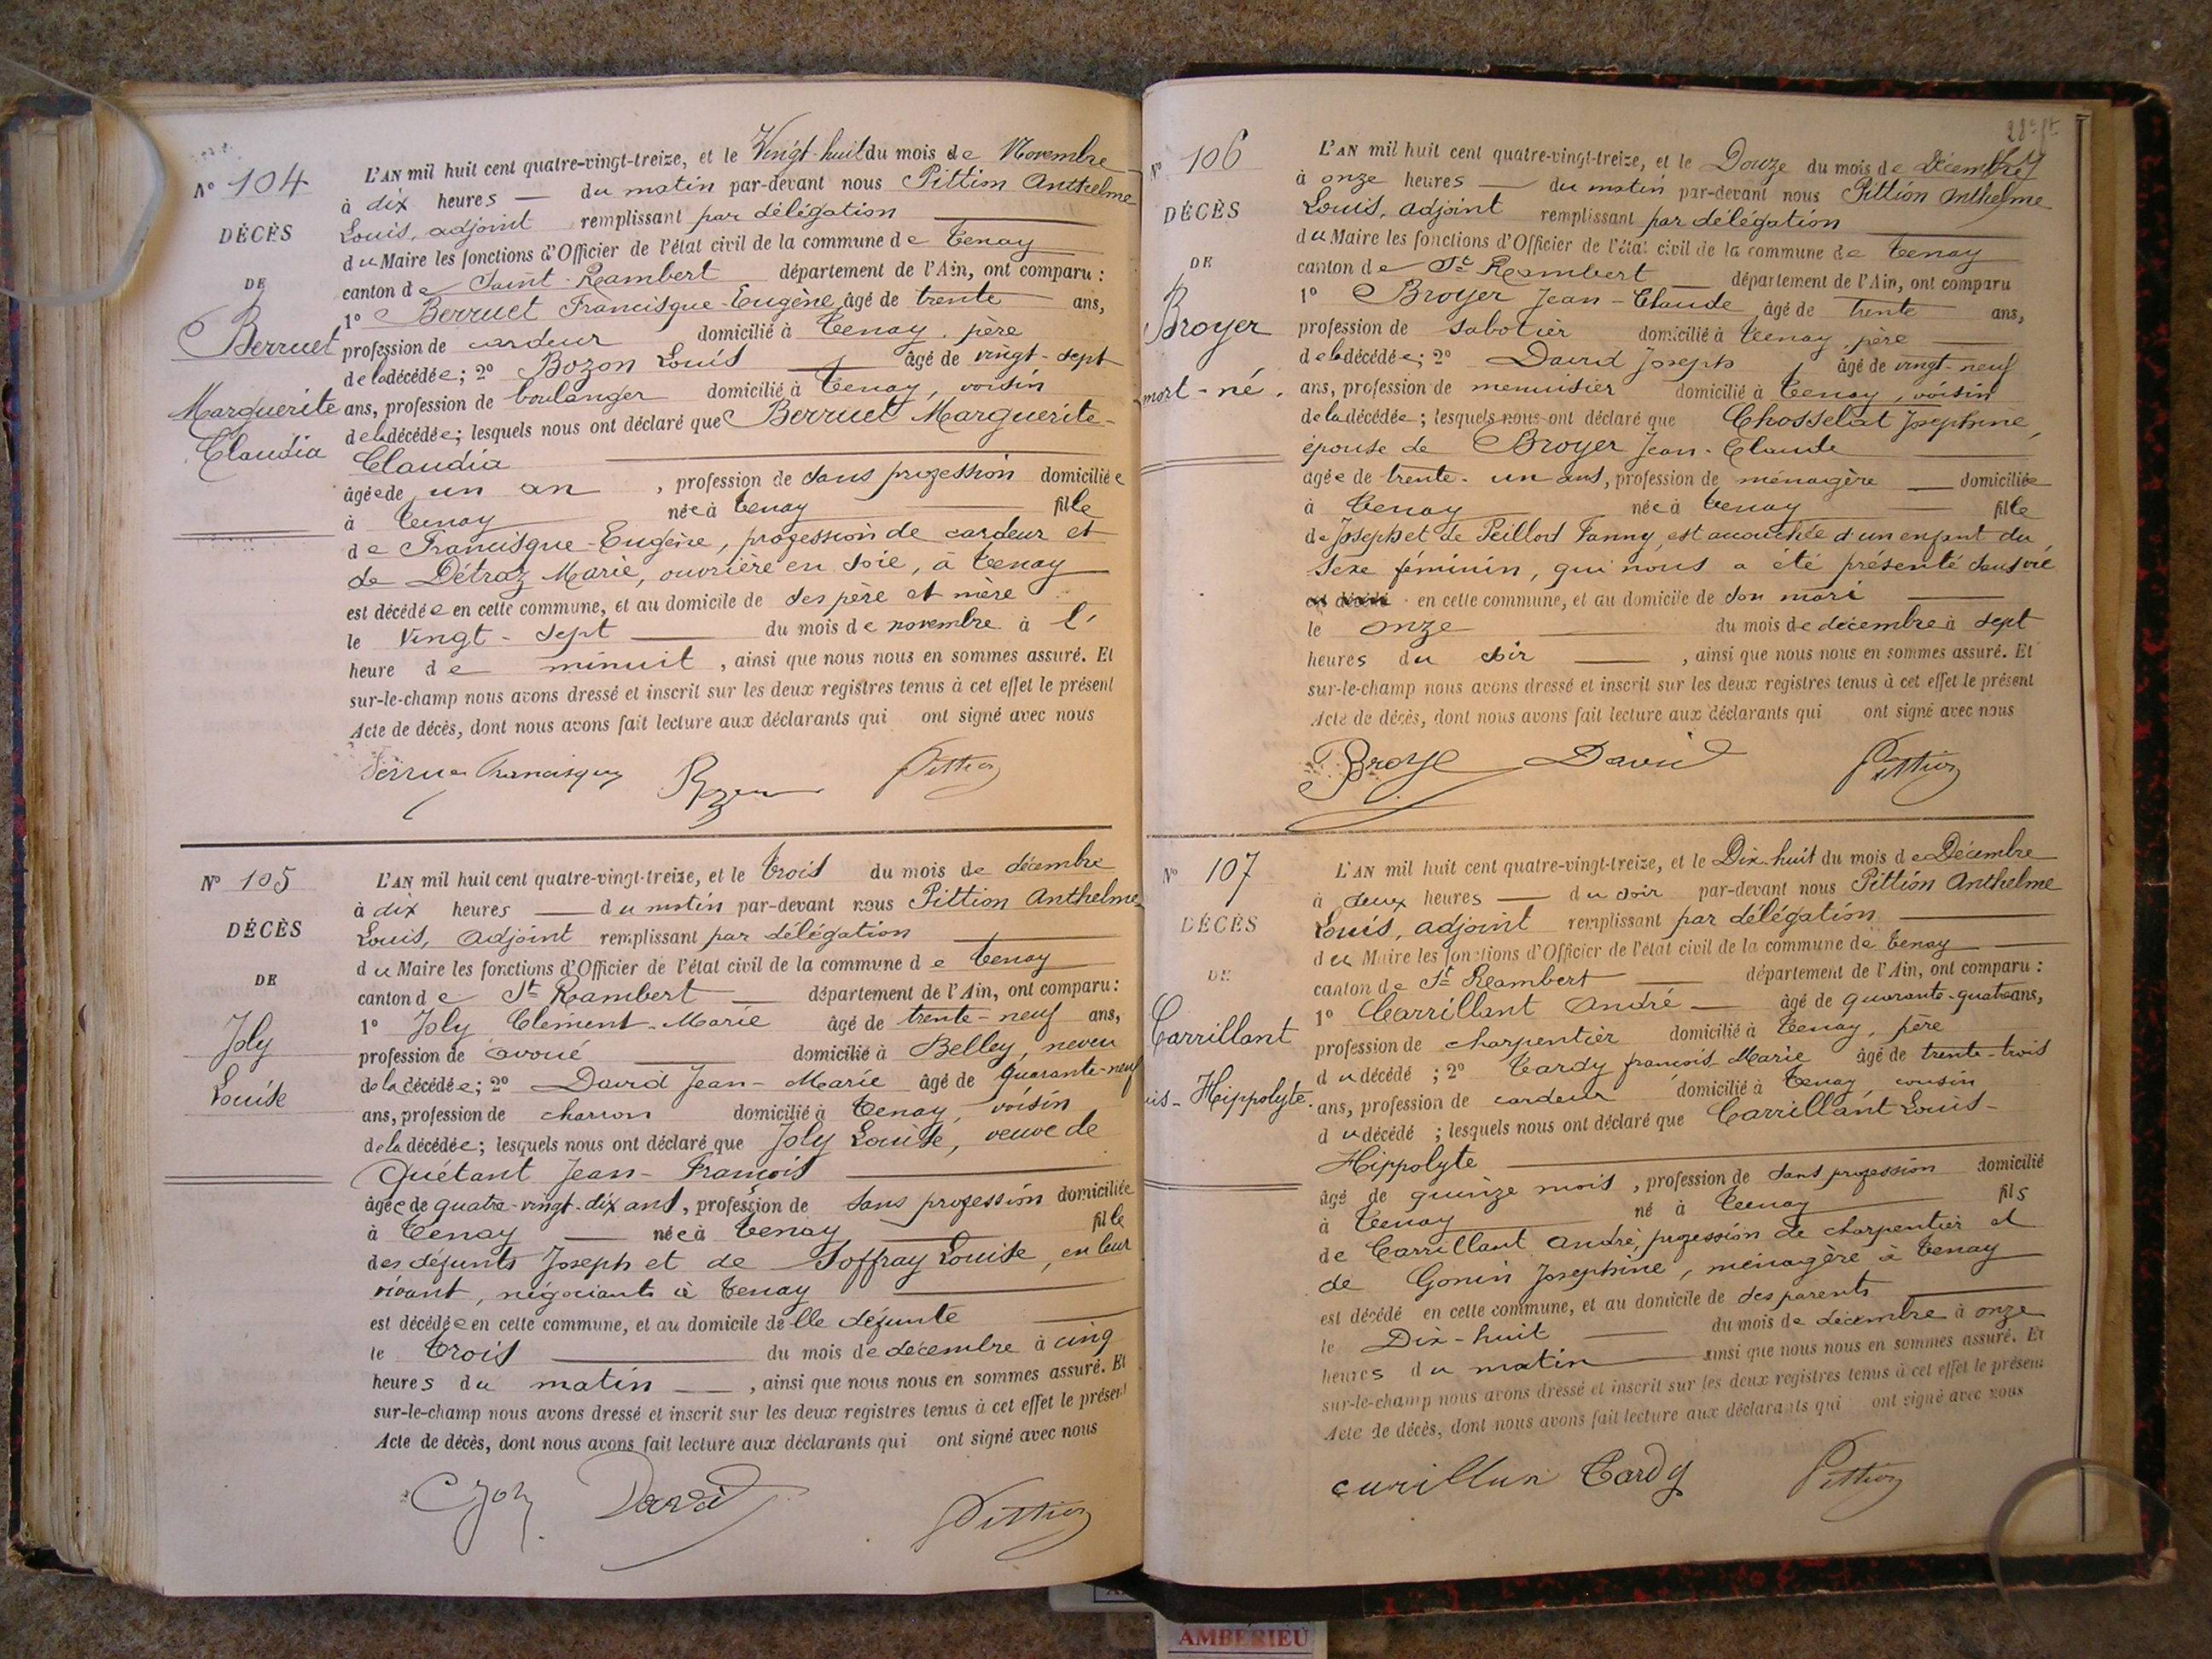 Nº 104
DÉCÈS
DE
Berruet
Marguerite
Claudia
L'AN mil huit cent quatre-vingt-treize, et le Vingt-huit du mois de Novembre
à dix heures — du matin par-devant nous Pittion Anthelme
Louis, adjoint remplissant par délégation
du Maire les fonctions d'Officier de l'état civil de la commune de Tenay
canton de Saint-Rambert département de l'Ain, ont comparu :
1º Berruet Francisque-Eugène, âgé de trente ans,
profession de cardeur domicilié à Tenay, père
de la décédée ; 2º Bozon Louis âgé de vingt-sept
ans, profession de boulanger domicilié à Tenay, voisin
de la décédée ; lesquels nous ont déclaré que Berruet Marguerite-
Claudia
âgée de un an, profession de sans profession domiciliée
à Tenay née à Tenay fille
de Francisque-Eugène, profession de cardeur et
de Détraz Marie, ouvrière en soie, à Tenay
est décédée en cette commune, et au domicile de ses père et mère
le Vingt-sept du mois de novembre à l'
heure de minuit, ainsi que nous nous en sommes assuré. Et
sur-le-champ nous avons dressé et inscrit sur les deux registres tenus à cet effet le présent
Acte de décès, dont nous avons fait lecture aux déclarants qui ont signé avec nous
Francisque Pittion
Nº 105
DÉCÈS
DE
Joly
Louise
L'AN mil huit cent quatre-vingt-treize, et le trois du mois de décembre
à dix heures — du matin par-devant nous Pittion Anthelme
Louis, adjoint remplissant par délégation
du Maire les fonctions d'Officier de l'état civil de la commune de Tenay
canton de St Rambert — département de l'Ain, ont comparu :
1º Joly Clément-Marie âgé de trente-neuf ans,
profession de avoué domicilié à Belley, neveu
de la décédée ; 2º David Jean-Marie âgé de quarante-neuf
ans, profession de charron domicilié à Tenay, voisin
de la décédée ; lesquels nous ont déclaré que Joly Louise, veuve de
Quétant Jean-François
âgée de quatre-vingt-dix ans, profession de sans profession domiciliée
à Tenay — née à Tenay fille
des défunts Joseph et de Soffray Louise, en leur
vivant, négociants à Tenay
est décédée en cette commune, et au domicile de elle défunte
le trois du mois de décembre à cinq
heures du matin —, ainsi que nous nous en sommes assuré. Et
sur-le-champ nous avons dressé et inscrit sur les deux registres tenus à cet effet le présent
Acte de décès, dont nous avons fait lecture aux déclarants qui ont signé avec nous
CJoly David Pittion
Nº 106
DÉCÈS
DE
Broyer
mort-né.
L'AN mil huit cent quatre-vingt-treize, et le Douze du mois de Décembre
à onze heures — du matin par-devant nous Pittion Anthelme
Louis, adjoint remplissant par délégation
du Maire les fonctions d'Officier de l'état civil de la commune de Tenay
canton de St Rambert — département de l'Ain, ont comparu
1º Broyer Jean-Claude âgé de trente ans,
profession de sabotier domicilié à Tenay, père
de la décédée ; 2º David Joseph âgé de vingt-neuf
ans, profession de menuisier domicilié à Tenay, voisin
de la décédée ; lesquels nous ont déclaré que Chosselat Josephine,
épouse de Broyer Jean-Claude
âgée de trente-un ans, profession de ménagère — domiciliée
à Tenay née à Tenay — fille
de Joseph et de Peillod Fanny, est accouchée d'un enfant du
sexe féminin, qui nous a été présenté sans vie
est décédé en cette commune, et au domicile de son mari
le onze du mois de décembre à sept
heures du soir —, ainsi que nous nous en sommes assuré. Et
sur-le-champ nous avons dressé et inscrit sur les deux registres tenus à cet effet le présent
Acte de décès, dont nous avons fait lecture aux déclarants qui ont signé avec nous
Broye David Pittion
Nº 107
DÉCÈS
DE
Carrillant
is-Hippolyte.
L'AN mil huit cent quatre-vingt-treize, et le Dix-huit du mois de Décembre
à deux heures — du soir par-devant nous Pittion Anthelme
Louis, adjoint remplissant par délégation
du Maire les fonctions d'Officier de l'état civil de la commune de Tenay
canton de St Rambert — département de l'Ain, ont comparu :
1º Carrillant André — âgé de quarante-quatre ans,
profession de charpentier domicilié à Tenay, père
du décédé ; 2º Tardy françois-Marie âgé de trente-trois
ans, profession de cardeur domicilié à Tenay, cousin
du décédé ; lesquels nous ont déclaré que Carrillant Louis-
Hippolyte
âgé de quinze mois, profession de sans profession domicilié
à Tenay né à Tenay fils
de Carrillant André, profession de charpentier et
de Gonin Josephine, ménagère à Tenay
est décédé en cette commune, et au domicile de ses parents
le Dix-huit — du mois de décembre à onze
heures du matin ainsi que nous nous en sommes assuré. Et
sur-le-champ nous avons dressé et inscrit sur les deux registres tenus à cet effet le présent
Acte de décès, dont nous avons fait lecture aux déclarants qui ont signé avec nous
curillun Tardy Pittion
AMBERIEU